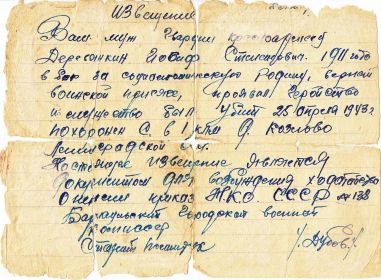 Извещение
Ваш муж Гвардии Красноармеец
Дересюнкин Иосиф 1911 года
в бою за социалистическую Родину, верный
воинской присяге, проявив геройство
и мужество был убит 25 апреля 1943 г.
похоронен С. в 1 д. Козлово
Ленинградской
Настоящее извещение является
документом для возбуждения ходатайства
о пенсии приказ НКО СССР № 138
Барнаульский Городской военный
комиссар
Старший
/Дубов/